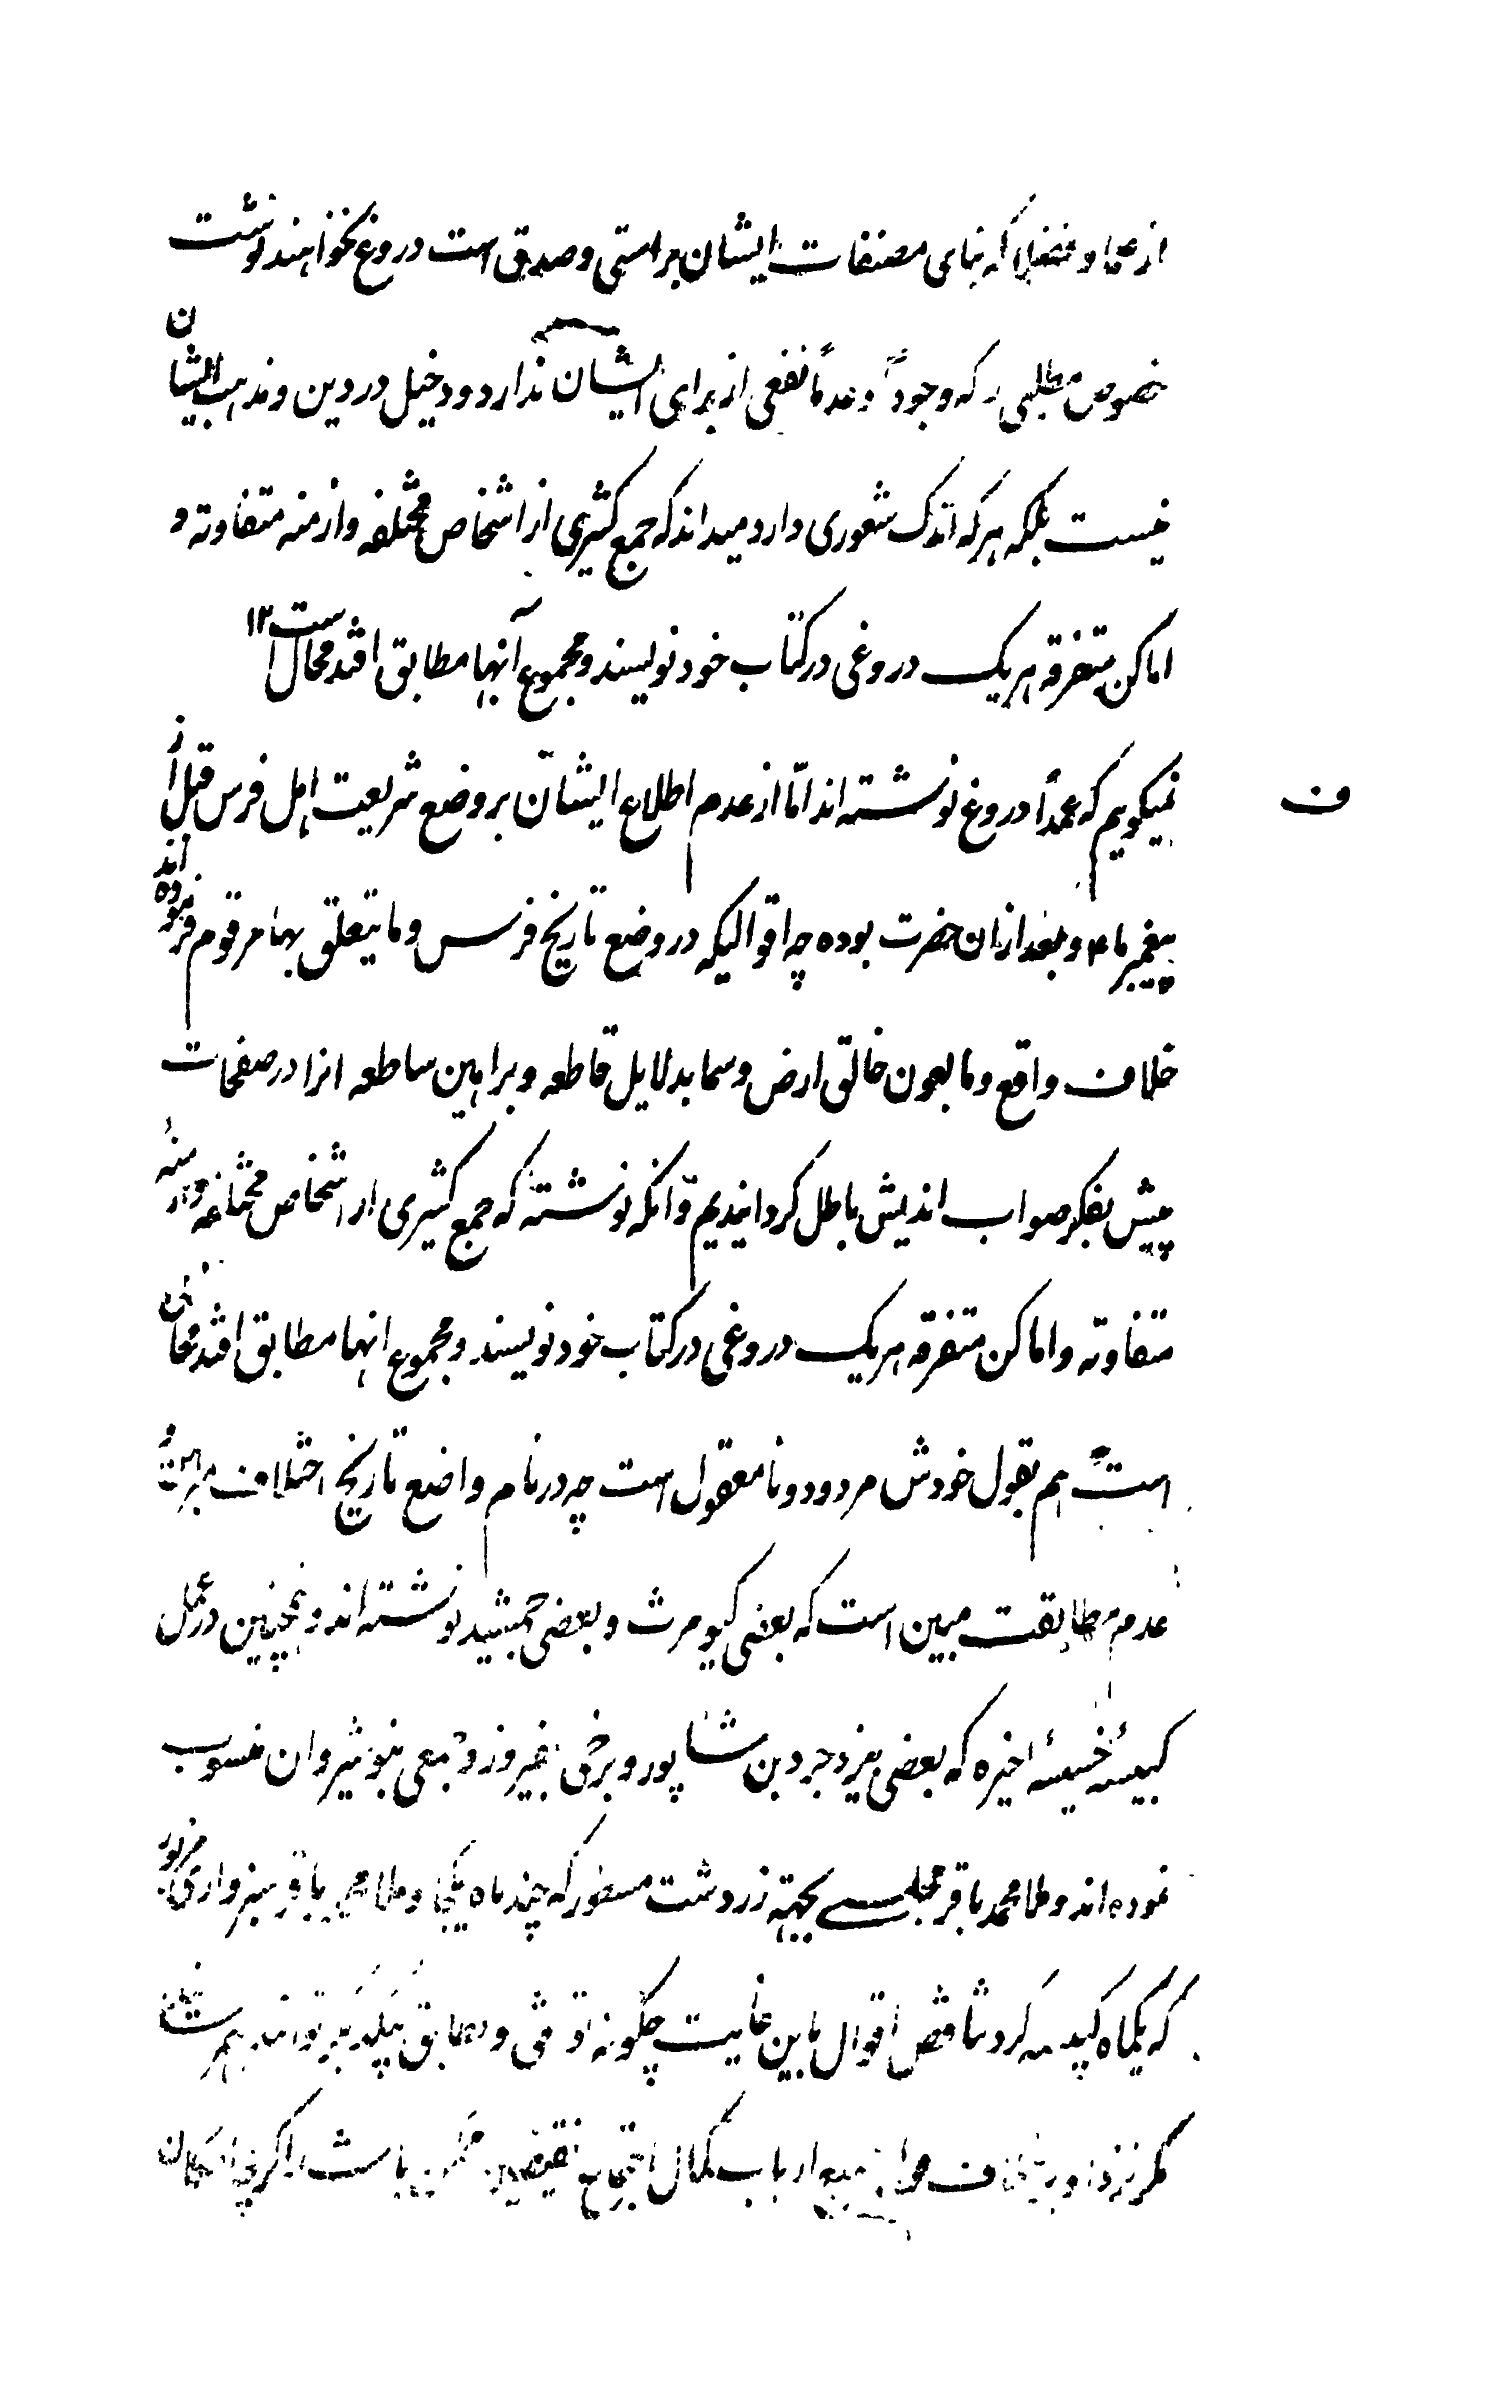 از علما و فضلا که بنای مصنفات ایشان براستی و صدق است دروغ نخواهند نوشت
خصوص مطلبی که وجوداً و عدماً نفعی از برای ایشان ندارد و دخیل در دین و مذهب ایشان
نیست بلکه هر که اندک شعوری دارد میداند که جمع کثیری از اشخاص مختلفه و ازمنه متفاوته و
اماکن متفرقه هر یک دروغی در کتاب خود نویسند و مجموع آنها مطابق افتد محال است ۱۲
ف
نمیکویم که عمداً دروغ نوشته اند امّا از عدم اطلاع ایشان بر وضع شریعت اهل فرس قبل از
پیغمبر ما و بعد از ان حضرت بوده چه اقوالیکه در وضع تاریخ فرس و ما یتعلق بها مرقوم فرموده اند
خلاف واقع و ما بعون خالق ارض و سما بدلایل قاطعه و براهین ساطعه انرا در صفحات
پیش بفکر صواب اندیش باطل کردانیدیم و آنکه نوشته که جمع کثیری از اشخاص مختلفه و ازمنه
متفاوته و اماکن متفرقه هر یک دروغی در کتاب خود نویسند و مجموع انها مطابق افتد محالی
است هم بقول خودش مردود و نا معقول است چه در نام واضع تاریخ اختلاف مبرهن و
عدم مطابقت مبین است که بعضی کیومرث و بعضی جمشید نوشته اند و همچنین در عمل
کبیسه خمیسه اخیره که بعضی بیزدجرد بن شاپور و برخی بفیروز و جمعی بنوشیروان منسوب
نموده اند و ملا محمد باقر مجلسی بجهته زردشت مسطور که چند ماه یکجا و ملا محمد باقر سبزواری مزبور
که یکماه کبیسه کرد تناقض اقوال باین غایت چکونه توافق و تطابق بیکدیگر توانند بهم رساند
مکر نزد او اجتماع نقیضین باشد اکرچه